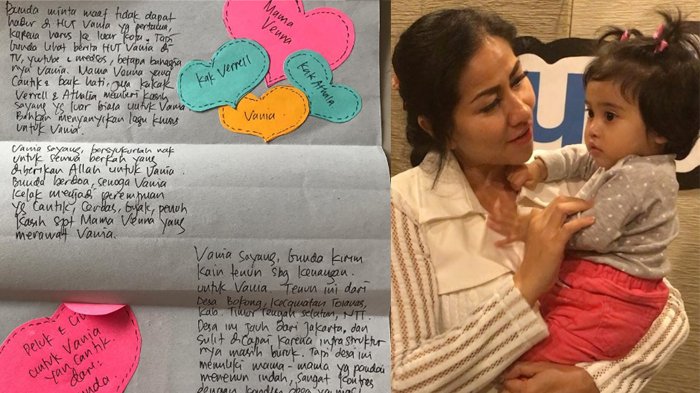 Bunda minta maaf tidak dapat
hadir di HUT Vania yg pertama,
karena harus ke luar kota. Tapi
bunda lihat berita HUT Vania di
TV, youtube & medsos, betapa bahagia
nya Vania. Mama Venna yang
Cantik & baik hati, juga kakak
Verrell & Athalia memberi kasih
sayang yg luar biasa untuk Vania
Bahkan menyanyikan lagu khusus
untuk Vania.
Mama
Venna
Kak Verrell
Kak Athalia
Vania
Vania sayang, bersyukurlah nak
untuk semua berkah yang
diberikan Allah untuk Vania.
Bunda berdoa, semoga Vania
kelak menjadi perempuan
yg Cantik, Cerdas, bijak, penuh
kasih spt Mama Venna yang
merawat Vania.
Vania sayang, bunda kirim
kain tenun sbg kenangan
untuk Vania. Tenun ini dari
Desa Bokong, Kecamatan
Kab. Timor Tengah Selatan, NTT.
Desa ini jauh dari Jakarta, dan
sulit dicapai karena infrastruktur
nya masih buruk. Tapi desa ini
memiliki mama-mama yg pandai
menenun indah, sangat kontras
dengan kondisi desa yg
Peluk &
untuk Vania
yan cantik
dari: